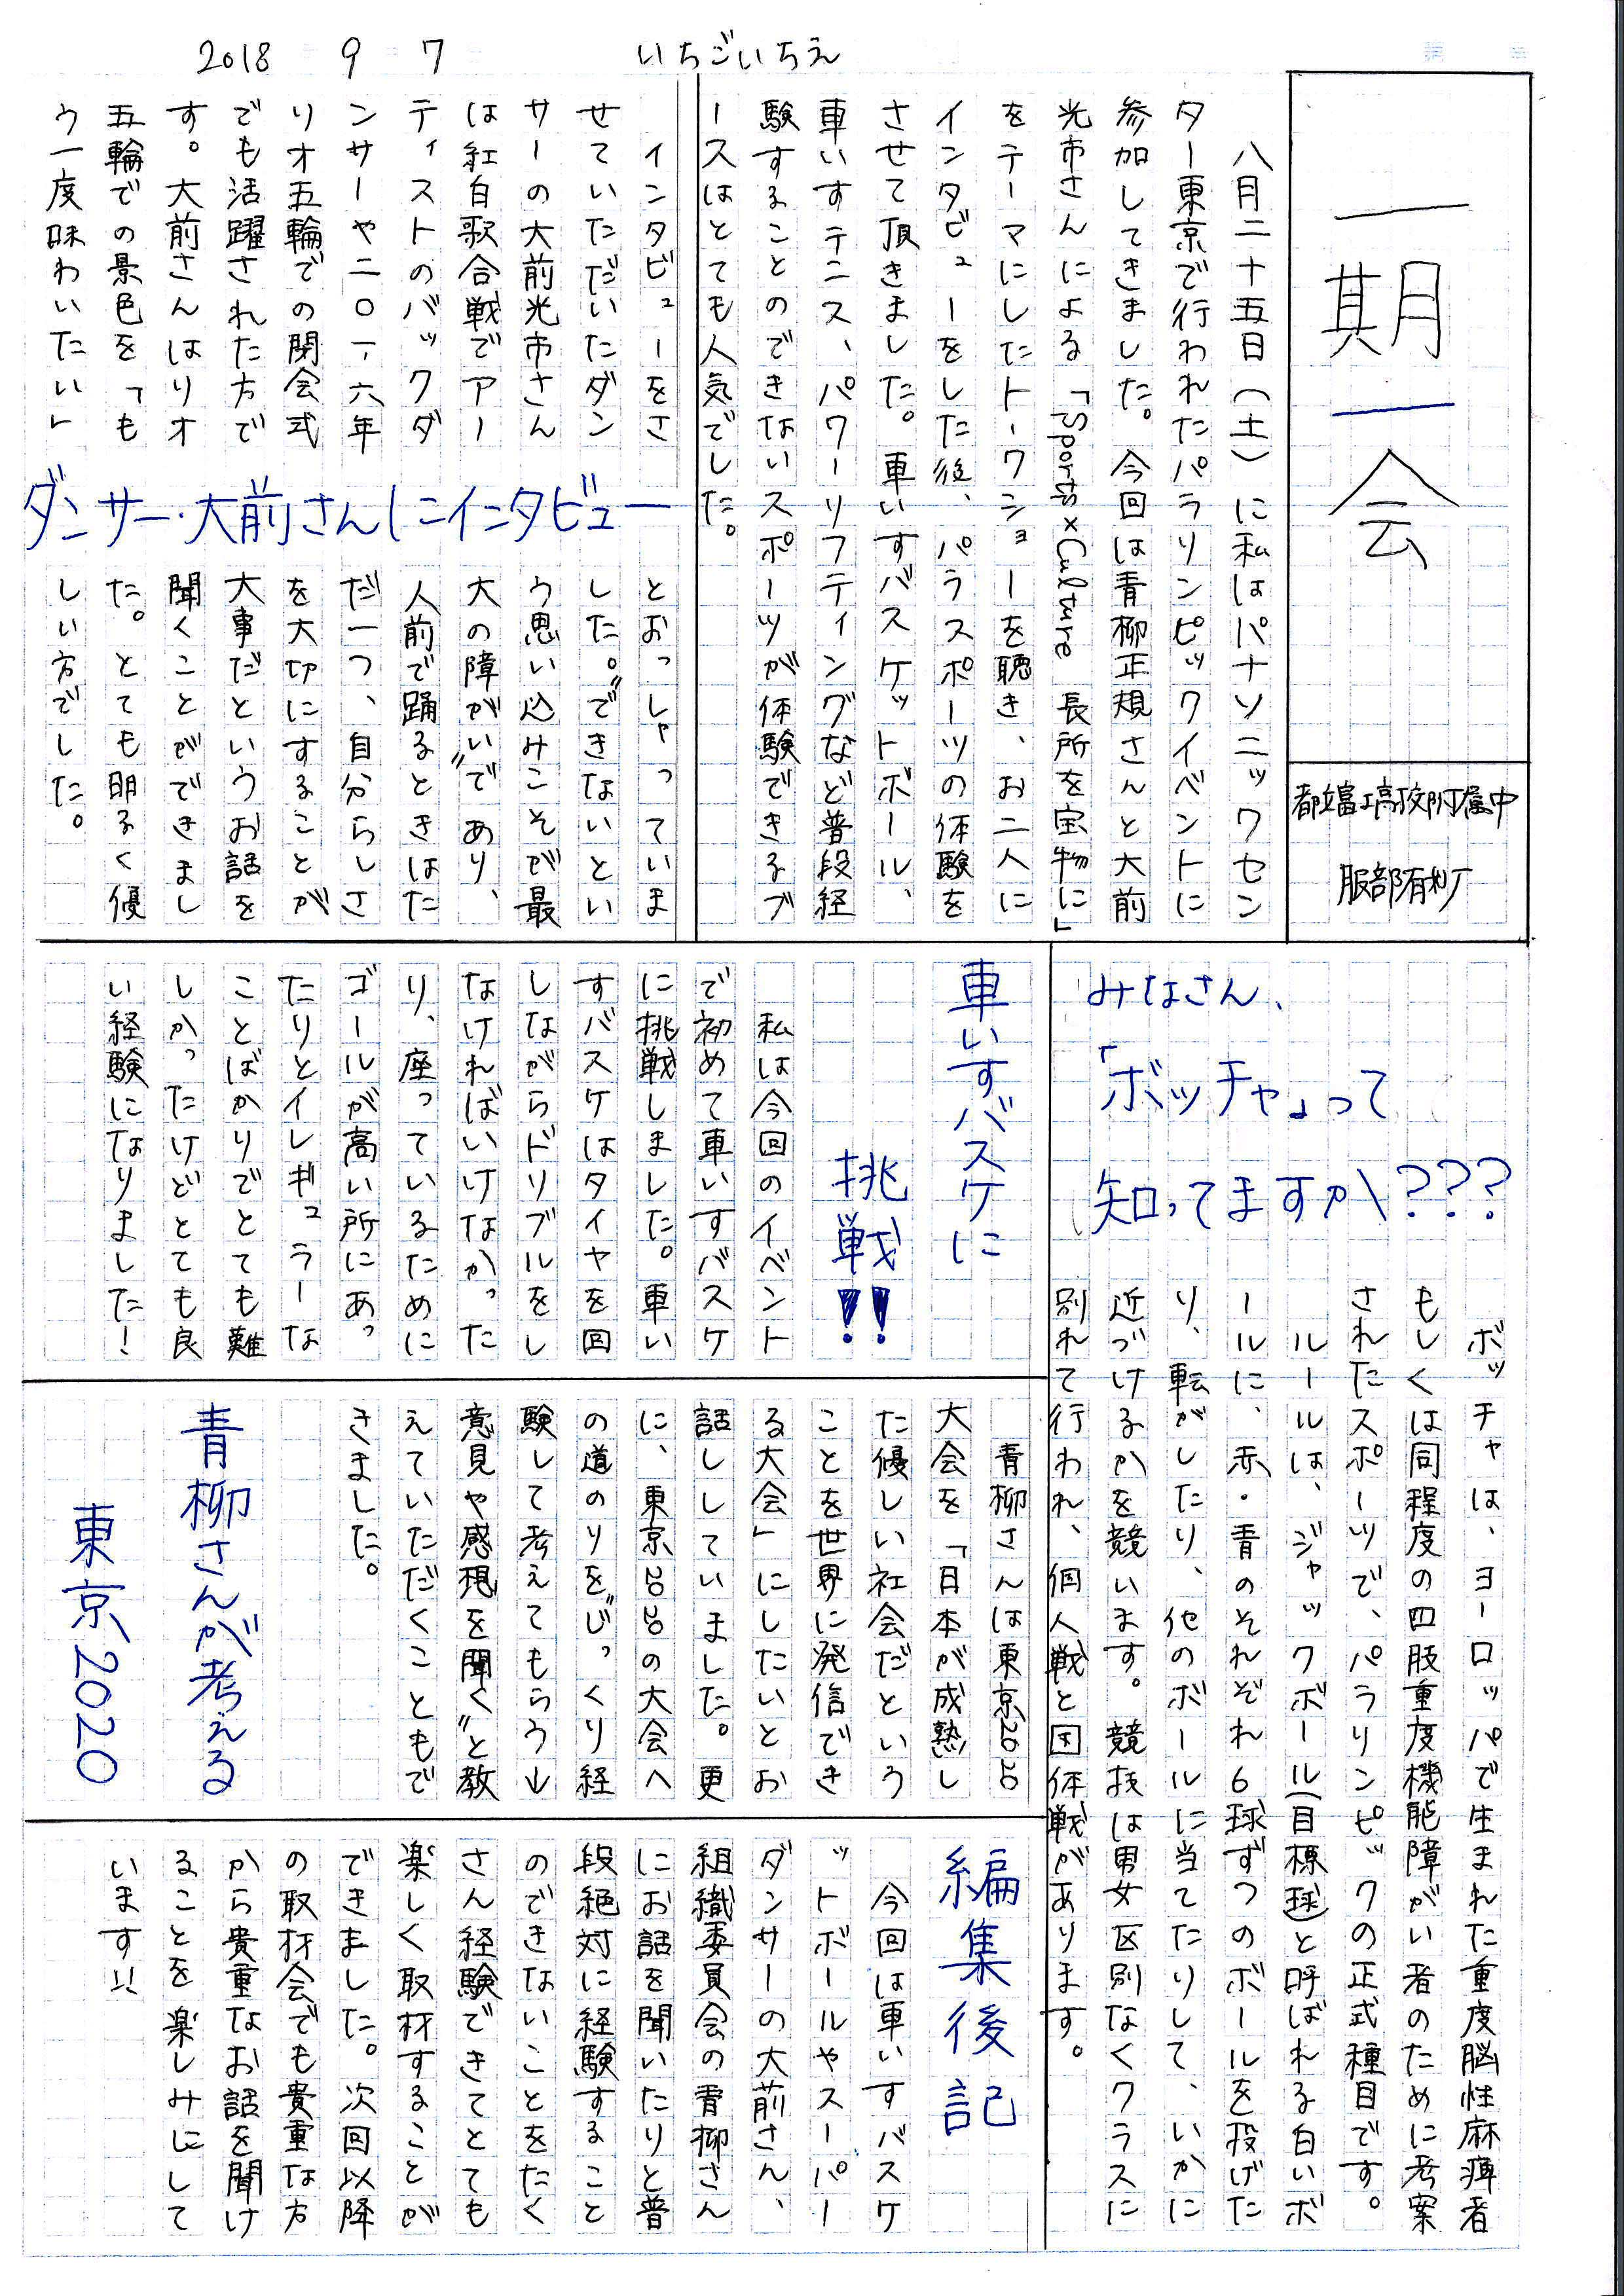 2018 9 7
いちごいちえ
一期一会
都立富士高校附属中
服部有利
八月二十五日(土)に私はパナソニックセン
ター東京で行われたパラリンピックイベントに
参加してきました。今回は青柳正規さんと大前
光市さんによる「Sports×Culture 長所を宝物に」
をテーマにしたトークショーを聴き、お二人に
インタビューをした後、パラスポーツの体験を
させて頂きました。車いすバスケットボール、
車いすテニス、パワーリフティングなど普段経
験することのできないスポーツが体験できるブ
ースはとても人気でした。
ダンサー・大前さんにインタビュー
インタビューをさ
せていただいたダン
サーの大前光市さん
は紅白歌合戦でアー
ティストのバックダ
ンサーや二〇一六年
リオ五輪での閉会式
でも活躍された方で
す。大前さんはリオ
五輪での景色を「も
う一度味わいたい」
とおっしゃっていま
した。"できないとい
う思い込みこそが最
大の障がい"であり、
人前で踊るときはた
だ一つ、自分らしさ
を大切にすることが
大事だというお話を
聞くことができまし
た。とても明るく優
しい方でした。
みなさん、
「ボッチャ」って
知ってますか???
ボッチャは、ヨーロッパで生まれた重度脳性麻痺者
もしくは同程度の四肢重度機能障がい者のために考案
されたスポーツで、パラリンピックの正式種目です。
ルールは、ジャックボール(目標球)と呼ばれる白いボ
ールに、赤・青のそれぞれ6球ずつのボールを投げた
り、転がしたり、他のボールに当てたりして、いかに
近づけるかを競います。競技は男女区別なくクラスに
別れて行われ、個人戦と団体戦があります。
車いすバスケに
挑戦!!
私は今回のイベント
で初めて車いすバスケ
に挑戦しました。車い
すバスケはタイヤを回
しながらドリブルをし
なければいけなかった
り、座っているために
ゴールが高い所にあっ
たりとイレギュラーな
ことばかりでとても難
しかったけどとても良
い経験になりました!
青柳さんは東京2020
大会を「日本が成熟し
た優しい社会だという
ことを世界に発信でき
る大会」にしたいとお
話ししていました。更
に、東京2020の大会へ
の道のりを"じっくり経
験して考えてもらう→
意見や感想を聞く"と教
えていただくこともで
きました。
青柳さんが考える
東京2020
編集後記
今回は車いすバスケ
ットボールやスーパー
ダンサーの大前さん、
組織委員会の青柳さん
にお話を聞いたりと普
段絶対に経験すること
のできないことをたく
さん経験できてとても
楽しく取材することが
できました。次回以降
の取材会でも貴重な方
から貴重なお話を聞け
ることを楽しみにして
います!!